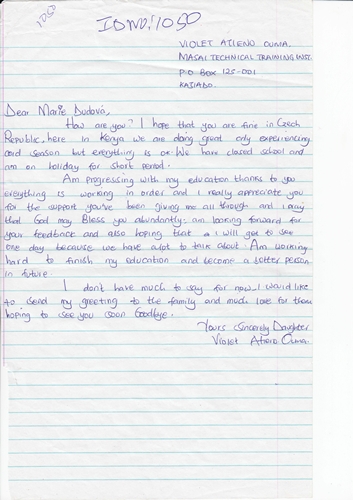 1050
IDNO: 1050
VIOLET ATIENO OUMA.
MASAI TECHNICAL TRAINING INST.
P.O BOX 125-001
KAJIADO.
Dear Marie Dudová,
How are you? I hope that you are fine in Czech
Republic, here in Kenya we are doing great only experiencing
cold season but everything is ok. We have closed school and
am on holiday for short period.
Am progressing with my education thanks to you
everything is working in order and I really appreciate you
for the support you've been giving me all through and I pray
that God may Bless you abundantly. am looking forward for
your feedback and also hoping that I will get to see
one day because we have alot to talk about. Am working
hard to finish my education and become a better person
in future.
I don't have much to say for now, I would like
to send my greeting to the family and much love for them
hoping to see you soon Goodbye.
Yours Sincerely Daughter
Violet Atieno Ouma.